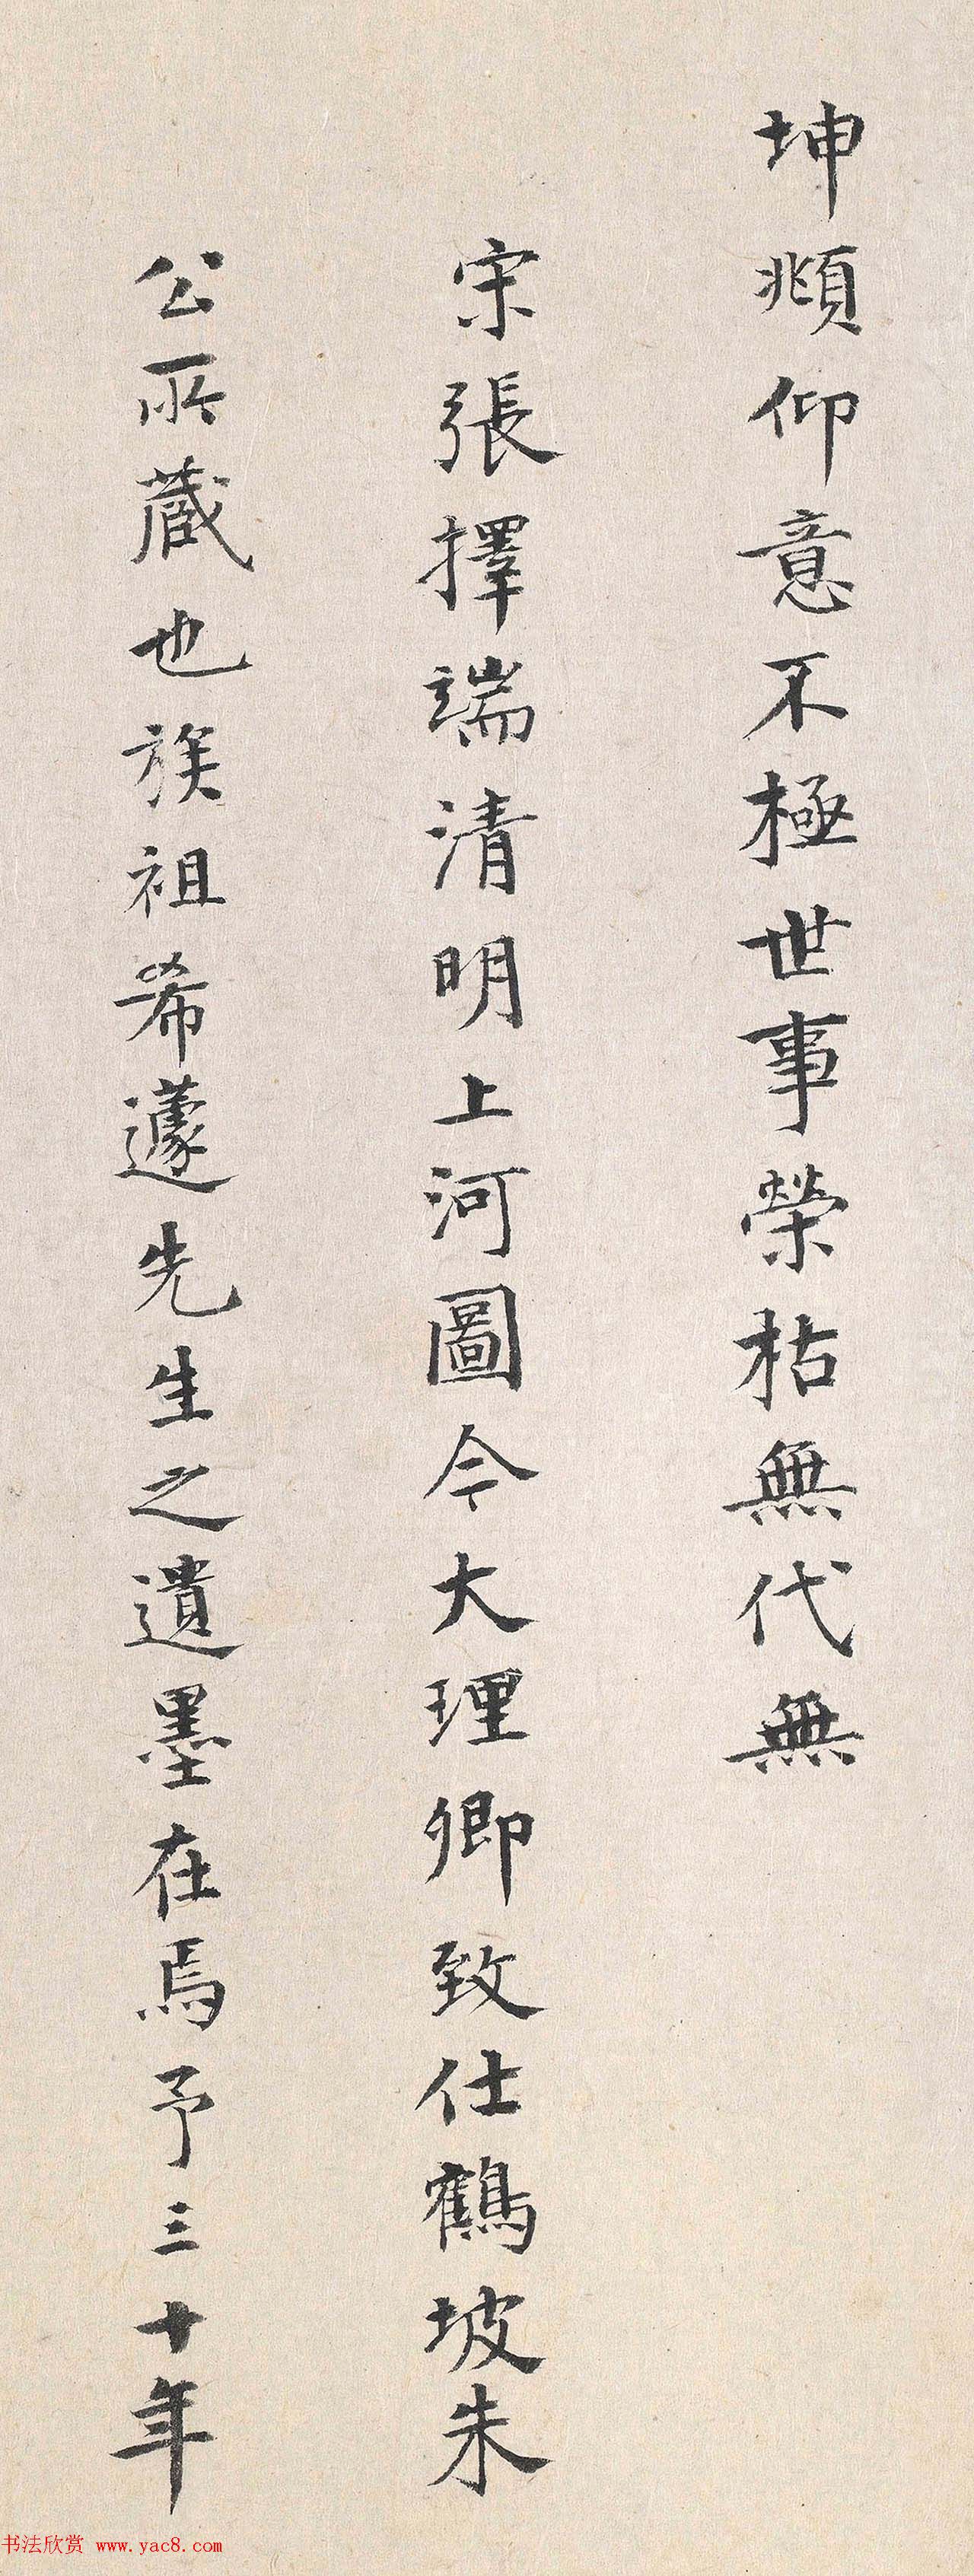 坤頫仰意不極世事榮枯無代無
宋張擇端清明上河圖今大理卿致仕鶴坡朱
公所藏也族祖希蘧先生之遺墨在焉予三十年
书法欣赏 www.yac8.com